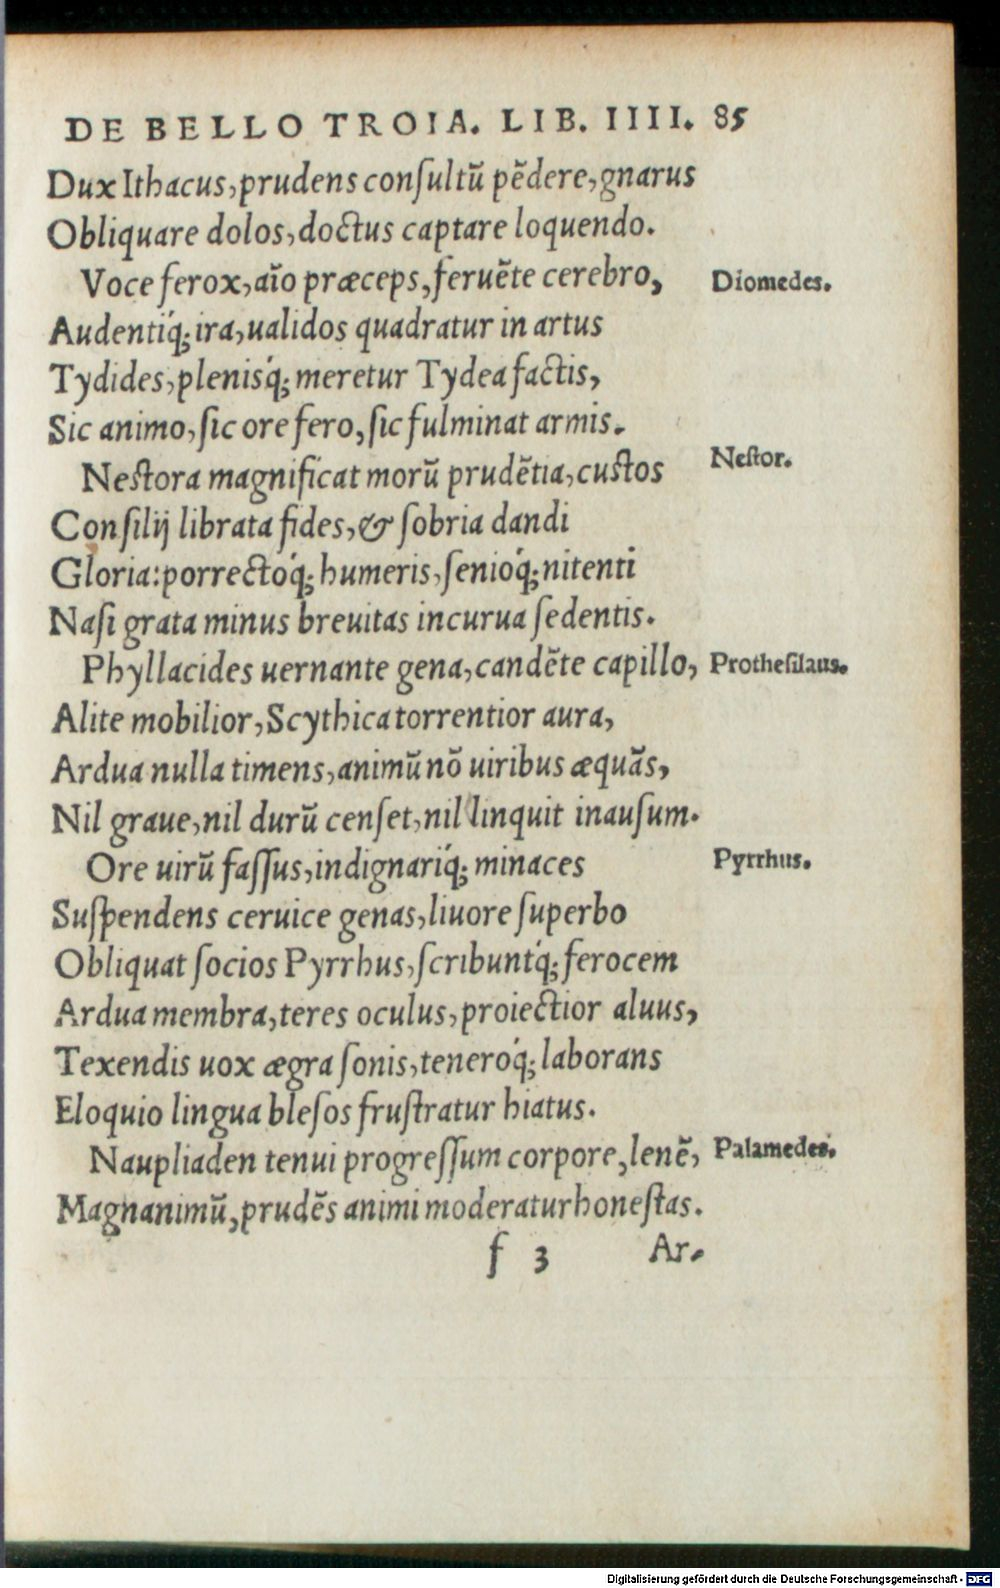 DE BELLO TROIA. LIB. IIII. 85
Dux Ithacus, prudens conſultũ pẽdere, gnarus
Obliquare dolos, doctus captare loquendo.
Voce ferox, aĩo præceps, feruẽte cerebro, Diomedes.
Audentiq́; ira, ualidos quadratur in artus
Tydides, plenisq́; meretur Tydea factis,
Sic animo, ſic ore fero, ſic fulminat armis.
Neſtora magnificat morũ prudẽtia, cuſtos Neſtor.
Conſilij librata fides, & ſobria dandi
Gloria: porrectoq́; humeris, ſenioq́; nitenti
Naſi grata minus breuitas incurua ſedentis.
Phyllacides uernante gena, candẽte capillo, Protheſilaus.
Alite mobilior, Scythica torrentior aura,
Ardua nulla timens, animũ nõ uiribus æquãs,
Nil graue, nil durũ cenſet, nil linquit inauſum.
Ore uirũ faſſus, indignariq́; minaces Pyrrhus.
Suſpendens ceruice genas, liuore ſuperbo
Obliquat ſocios Pyrrhus, ſcribuntq́; ferocem
Ardua membra, teres oculus, proiectior aluus,
Texendis uox ægra ſonis, teneroq́; laborans
Eloquio lingua bleſos fruſtratur hiatus.
Naupliaden tenui progreſſum corpore, lenẽ, Palamedes.
Magnanimũ, prudẽs animi moderatur honeſtas.
f 3 Ar.
Digitalisierung gefördert durch die Deutsche Forschungsgemeinschaft - DFG